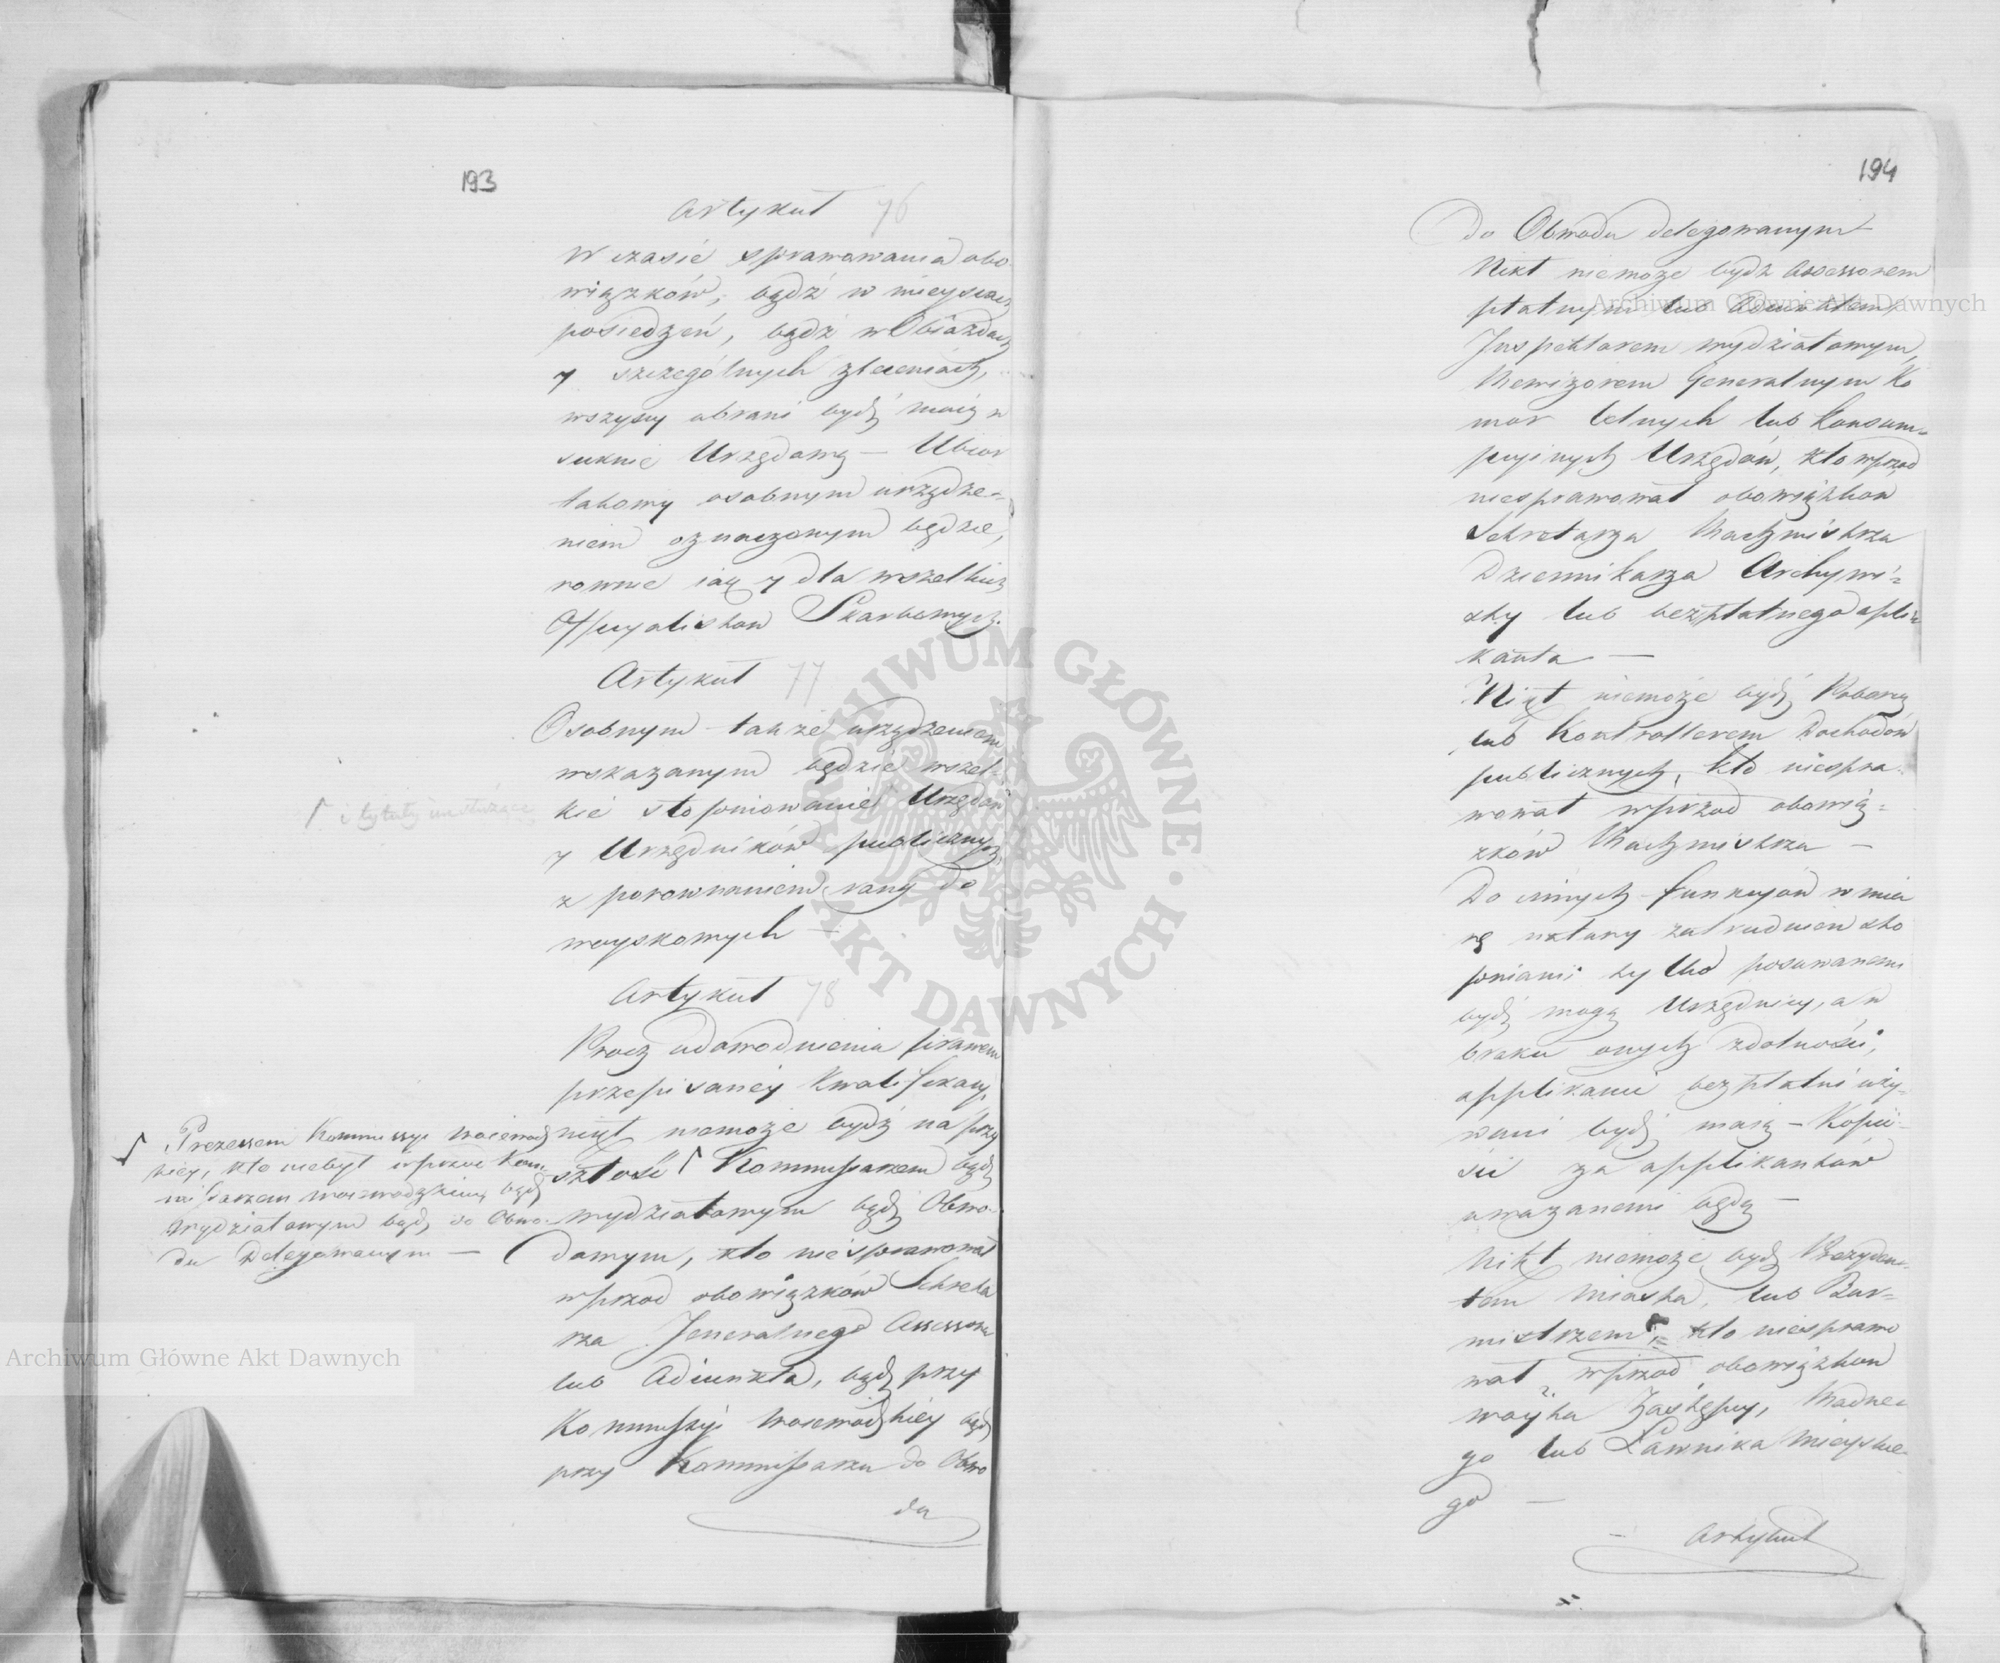 193
Artykuł 76
W czasie sprawowania obo
wiązków, bądź w mieyscach
posiedzeń, bądź w Obiazdach
y szczególnych zleceniach,
wszyscy ubrani bydź maią w
suknie Urzędową — Ubior
takowy osobnym urządze-
niem oznaczonym będzie,
rownie iak y dla wszelkich
Officyalistow Skarbowych.
Artykuł 77
Osobnym także urządzeniem
wskazanym będzie wszel-
kie stopniowanie Urzędów
y Urzędników publicznych
z porownaniem rang do
woyskowych —
i tytuły
Artykuł 78
Procz udowodnienia prawem
przepisaney kwalifikacyi
nikt niemoże bydź na przy
szłość Kommissarzem bądź
wydziałowym bądź Obwo-
dowym, kto niesprawował
wprzod obowiązków Sekreta
rza Jeneralnego Assessora
lub Adiunkta, bądź przy
Kommissyi Woiewodzkiey bądź
przy Kommissarzu do Obwo
du
Prezesem Kommissyi Woiewodz
kiey, kto niebył wprzod Kom-
missarzem Woiewodzkim, bądź
Wydziałowym bądź do Obwo-
du Delegowanym —
194
do Obwodu delegowanym
Nikt niemoże bydź Assessorem
płatnym lub Adiunktem,
Inspektorem wydziałowym,
Rewizorem Generalnym Ko
mor Celnych lub Konsum-
pcyinych Urzędów, kto wprzod
niesprawował obowiązkow
Sekretarza Rachmistrza
Dziennikarza Archywi-
sty lub bezpłatnego apli-
kanta —
Nikt niemoże bydź Poborcą
lub Kontrollerem Dochodów
publicznych, kto niespra-
wował wprzod obowią-
zków Rachmistrza —
Do innych funkcyów w mia
rę natury zatrudnien sto
pniami tylko posuwanemi
bydź mogą Urzędnicy, a w
braku onych zdolności,
applikanci bezpłatni uży-
wani bydź maią — Kopii-
ści za applikantów
uwazanemi będą —
Nikt niemoże bydź Prezyden-
tem Miasta, lub Bur-
mistrzem, kto niesprawo
wał wprzod obowiązkow
woyta Zastępcy, Radne-
go lub Ławnika Mieyskie-
go —
Artykuł
Archiwum Główne Akt Dawnych
Archiwum Główne Akt Dawnych
ARCHIWUM GŁÓWNE · AKT DAWNYCH ·